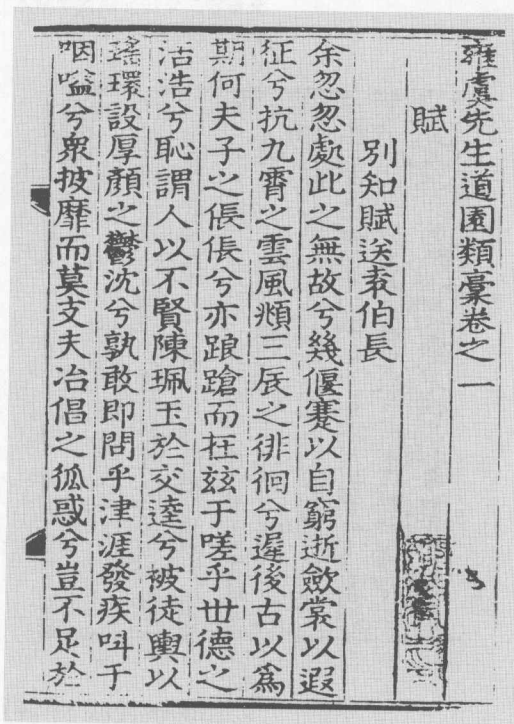 雍虞先生道園類稾卷之一
賦
別知賦送袁伯長
余忽忽處此之無故兮幾偃蹇以自窮逝斂裳以遐
征兮抗九霄之雲風頫三辰之徘徊兮遲後古以為
期何夫子之倀倀兮亦踉蹌而枉玆于嗟乎世德之
活浩兮恥謂人以不賢陳珮玉於交逵兮被徒輿以
瑤環設厚顏之鬱沈兮孰敢即問乎津涯發疾呌于
咽嗌兮衆披靡而莫支夫冶倡之狐惑兮豈不足於